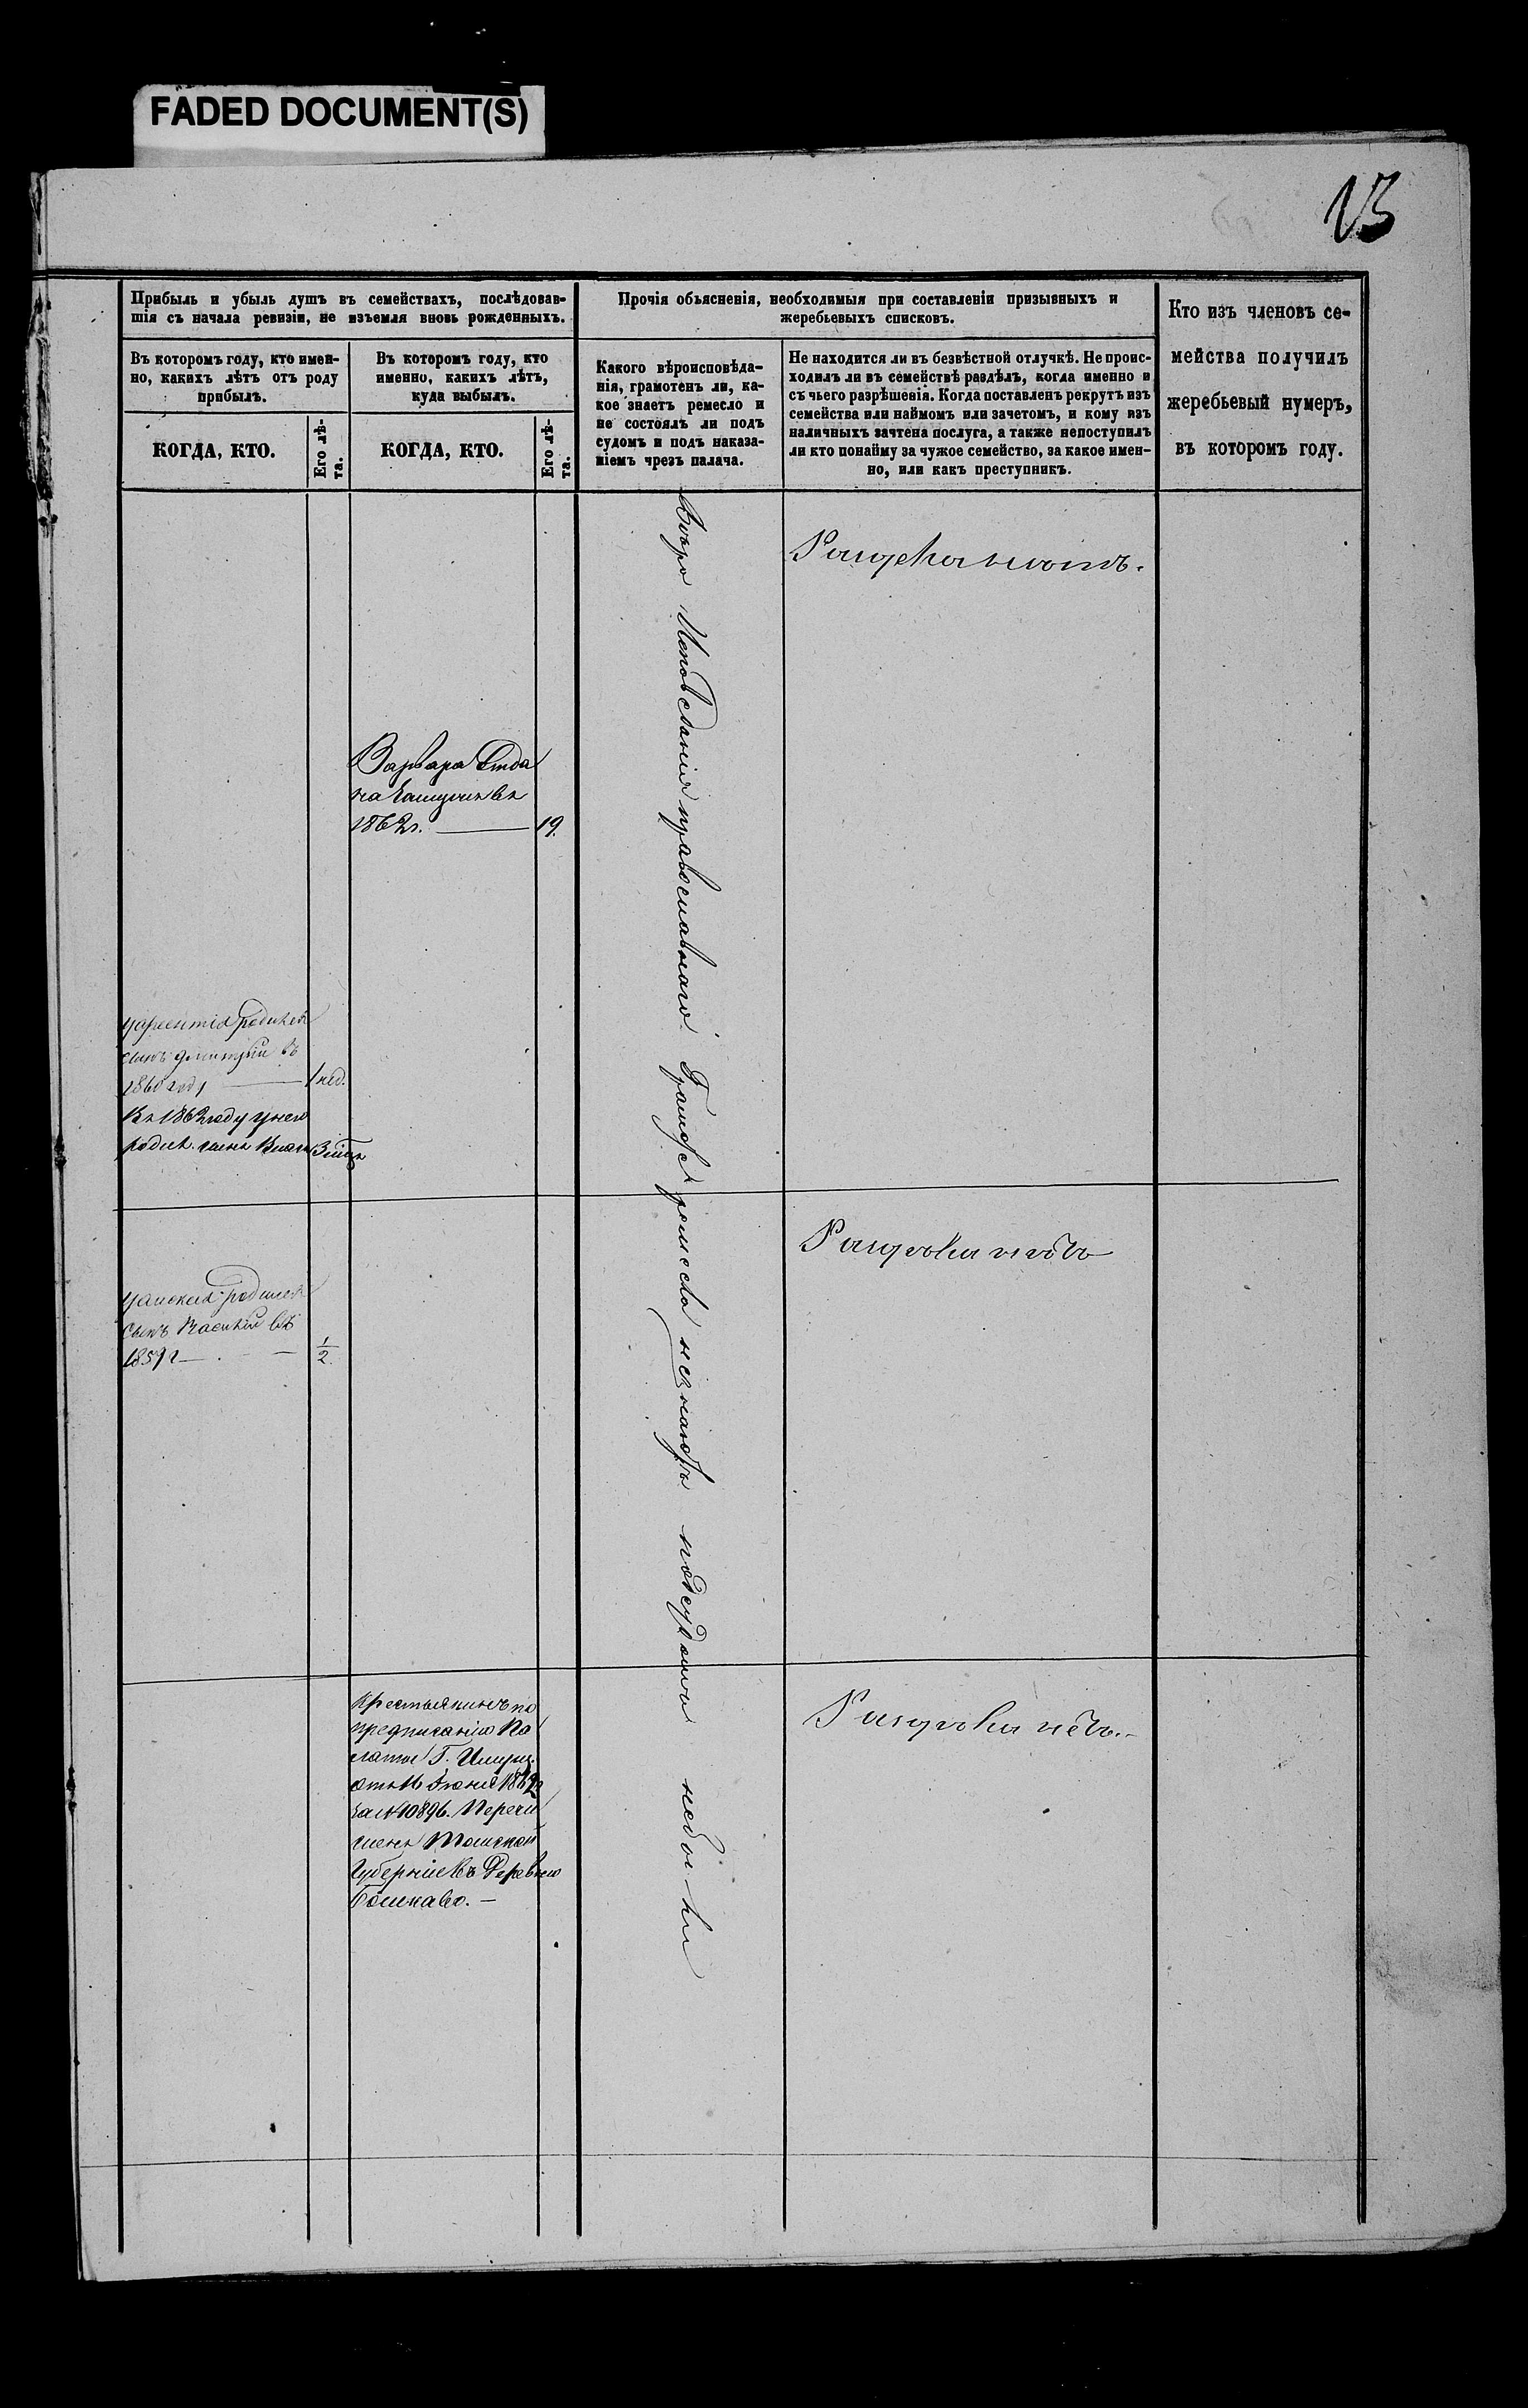 FADED DOCUMENT(S)
13
Прибыль и убыль душъ въ семействахъ, послѣдовав-
шія съ начала ревизіи, не изъемля вновь рожденныхъ.
Въ которомъ году, кто имен-
но, какихъ лѣтъ отъ роду
прибылъ.
КОГДА, КТО.
Его лѣ-
та.
Въ которомъ году, кто
именно, какихъ лѣтъ,
куда выбылъ.
КОГДА, КТО.
Его лѣ-
та.
Прочія объясненія, необходимыя при составленіи призывныхъ и
жеребьевыхъ списковъ.
Какого вѣроисповѣда-
нія, грамотенъ ли, ка-
кое знаетъ ремесло и
не состоялъ ли подъ
судомъ и подъ наказа-
ніемъ чрезъ палача.
Не находится ли въ безвѣстной отлучкѣ. Не проис-
ходилъ ли въ семействѣ раздѣлъ, когда именно и
съ чьего разрѣшенія. Когда поставленъ рекрутъ изъ
семейства или наймомъ или зачетомъ, и кому изъ
наличныхъ зачтена послуга, а также непоступилъ
ли кто понайму за чужое семейство, за какое имен-
но, или какъ преступникъ.
Кто изъ членовъ се-
мейства получилъ
жеребьевый нумеръ,
въ которомъ году.
Варвара Отда
на Замужъ въ
1862г. — 19.
сынъ Дмитрій въ
1860 году — 1 нед.
Въ 1862 году у него
родил. сынъ 3 мѣц
родился
сынъ Василій въ
1859 г — 1/2.
Крестьянинъ по
предписанію Па
латы Г. Имущ.
отъ 16 Іюня
за № 10896. Перечи
сленъ Томской
Губерніи въ Деревню
Вѣро Исповеданія православнаго. Грамотѣ и ремесла незнаютъ подсудомъ небыли